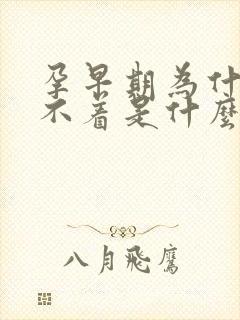 孕早期為什
不着是什麼
八月飛鷹